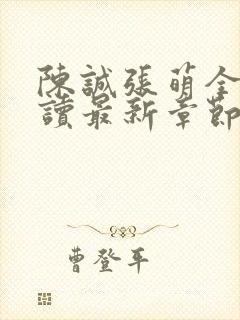 陳誠張萌全
讀最新章節
曹登平